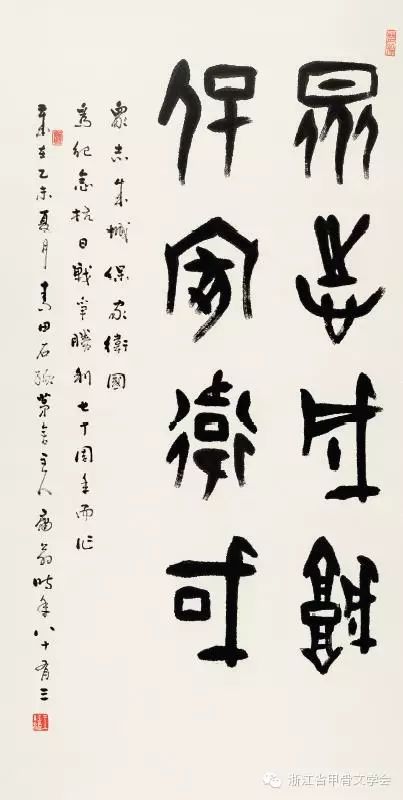 眾志成城
保家衛國
眾志成城保家衛國
為紀念抗日戰爭勝利七十周年而作
歲在乙未夏月青田石
主人
翁時年八十有三
浙江省甲骨文学会